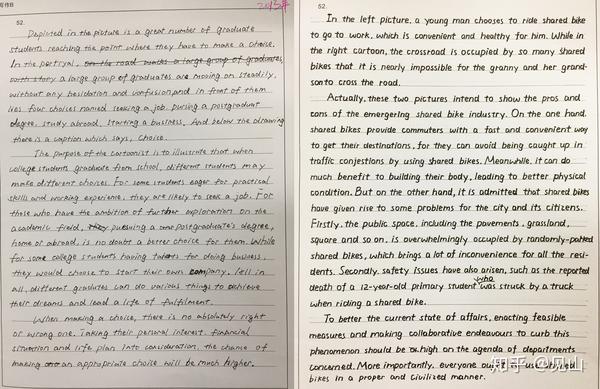 写作B
2013年
52.
Depicted in the picture is a great number of graduate
students reaching the point where they have to make a choice.
In the portryal, on the road walks a large group of graduates,
a large group of graduates are moving on steadily,
without any hesidation and confusion, and in front of them
lies four choices named seeking a job, pursing a postgraduat
degree, study abroad, starting a business. And below the drawing
there is a caption which says, Choice.
The purpose of the cartoonist is to illustrate that when
college students graduate from school, different students may
make different choices. For some students eager for practical
skills and working experience, they are likely to seek a job. For
those who have the ambition of further exploration on the
academic field, they pursuing a postgraduate's degree,
home or abroad, is no doubt a better choice for them. While
for some college students having talents for doing business,
they would choose to start their own company. Tell in
all, different graduates can do various things to achieve
their dreams and lead a life of fulfilment.
When making a choice, there is no absolutely right
or wrong one. Taking their personal interest, financial
situation and life plan into consideration, the chance of
making an appropriate choice will be much higher.
52.
In the left picture, a young man chooses to ride shared bike
to go to work, which is convenient and healthy for him. While in
the right cartoon, the crossroad is occupied by so many shared
bikes that it is nearly impossible for the granny and her grand-
son to cross the road.
Actually, these two pictures intend to show the pros and
cons of the emergering shared bike industry. On the one hand,
shared bikes provide commuters with a fast and convenient way
to get their destinations, for they can avoid being caught up in
traffic conjestions by using shared bikes. Meanwhile, it can do
much benefit to building their body, leading to better physical
condition. But on the other hand, it is admitted that shared bikes
have given rise to some problems for the city and its citizens.
Firstly, the public space, including the pavements, grassland,
square and so on, is overwhelmingly occupied by randomly-parked
shared bikes, which brings a lot of inconvenience for all the resi-
dents. Secondly, safety issues have also arisen, such as the reported
death of a 12-year-old primary student who was struck by a truck
when riding a shared bike.
To better the current state of affairs, enacting feasible
measures and making collaborative endeavours to curb this
phenomenon should be high on the agenda of departments
concerned. More importantly, everyone ought to use shared
bikes in a proper and civilized manner.
知乎 @见山